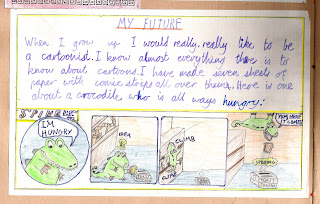 MY FUTURE
When I grow up I would really, really like to be
a cartoonist. I know almost everything there is to
know about cartoons. I have made seven sheets of
paper with comic strips all over them. Here is one
about a crocodile who is all ways hungry:
I'M
HUNGRY
CLIMB
CLIMB